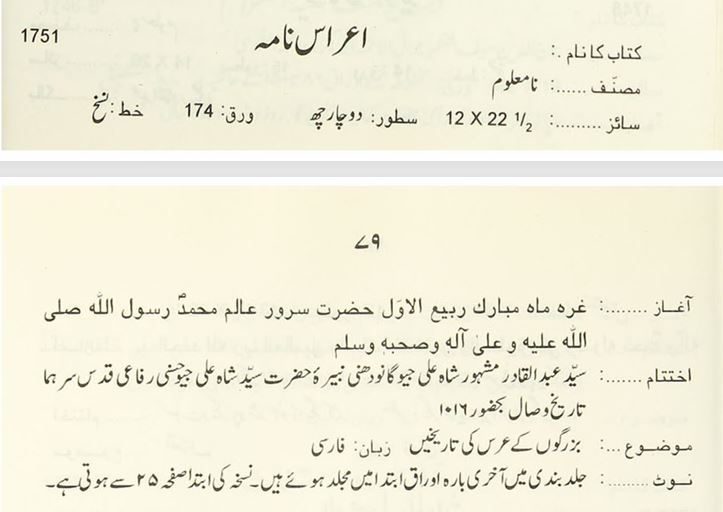 1751
کتاب کا نام .: اعراس نامہ
مصنّف ......: نامعلوم
سائز .........: 12 X 22 1/2 سطور: دو چار چھ ورق: 174 خط: نسخ
۷۹
آغاز ........: غرہ ماہ مبارك ربیع الاوّل حضرت سرور عالم محمدؐ رسول اللّٰہ صلی
اللّٰہ علیہ و علیٰ آلہ وصحبہ وسلم
اختتام .......: سیّد عبدالقادر مشہور شاہ علی جیو گانودھنی نبیرۂ حضرت سیّد شاہ علی جیو حسنی رفاعی قدس سرہما
تاریخ وصال بحضور ۱۰۱۶
موضوع ...: بزرگوں کے عرس کی تاریخیں زبان: فارسی
نوٹ ........: جلد بندی میں آخری بارہ اوراق ابتدا میں مجلد ہوئے ہیں۔ نسخہ کی ابتدا صفحہ ۲۵ سے ہوتی ہے۔